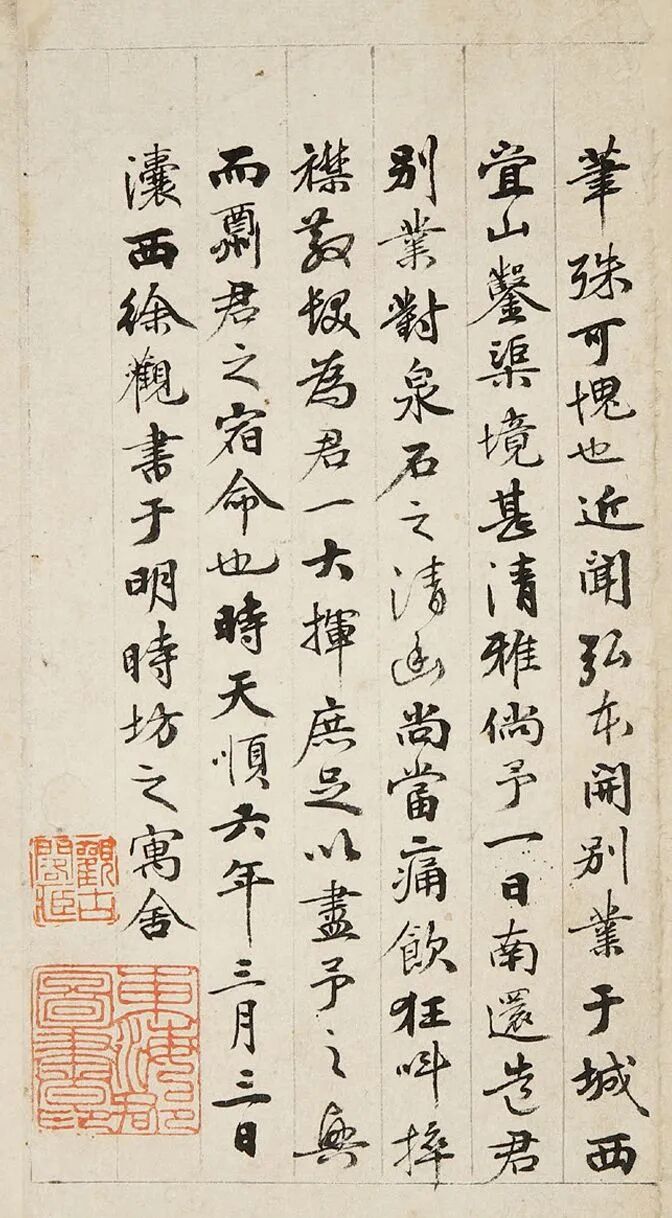 筆殊可愧也近聞弘本開別業于城西
山鑿渠境甚清雅倘予一日南還造君
別業對泉石之清幽尚當痛飲狂叫捽
襟散髮為君一大揮庶足以盡予之興
而酬君之宿命也時天順六年三月三日
瀼西徐觀書于明時坊之寓舍
觀古閣
東海郡圖書印